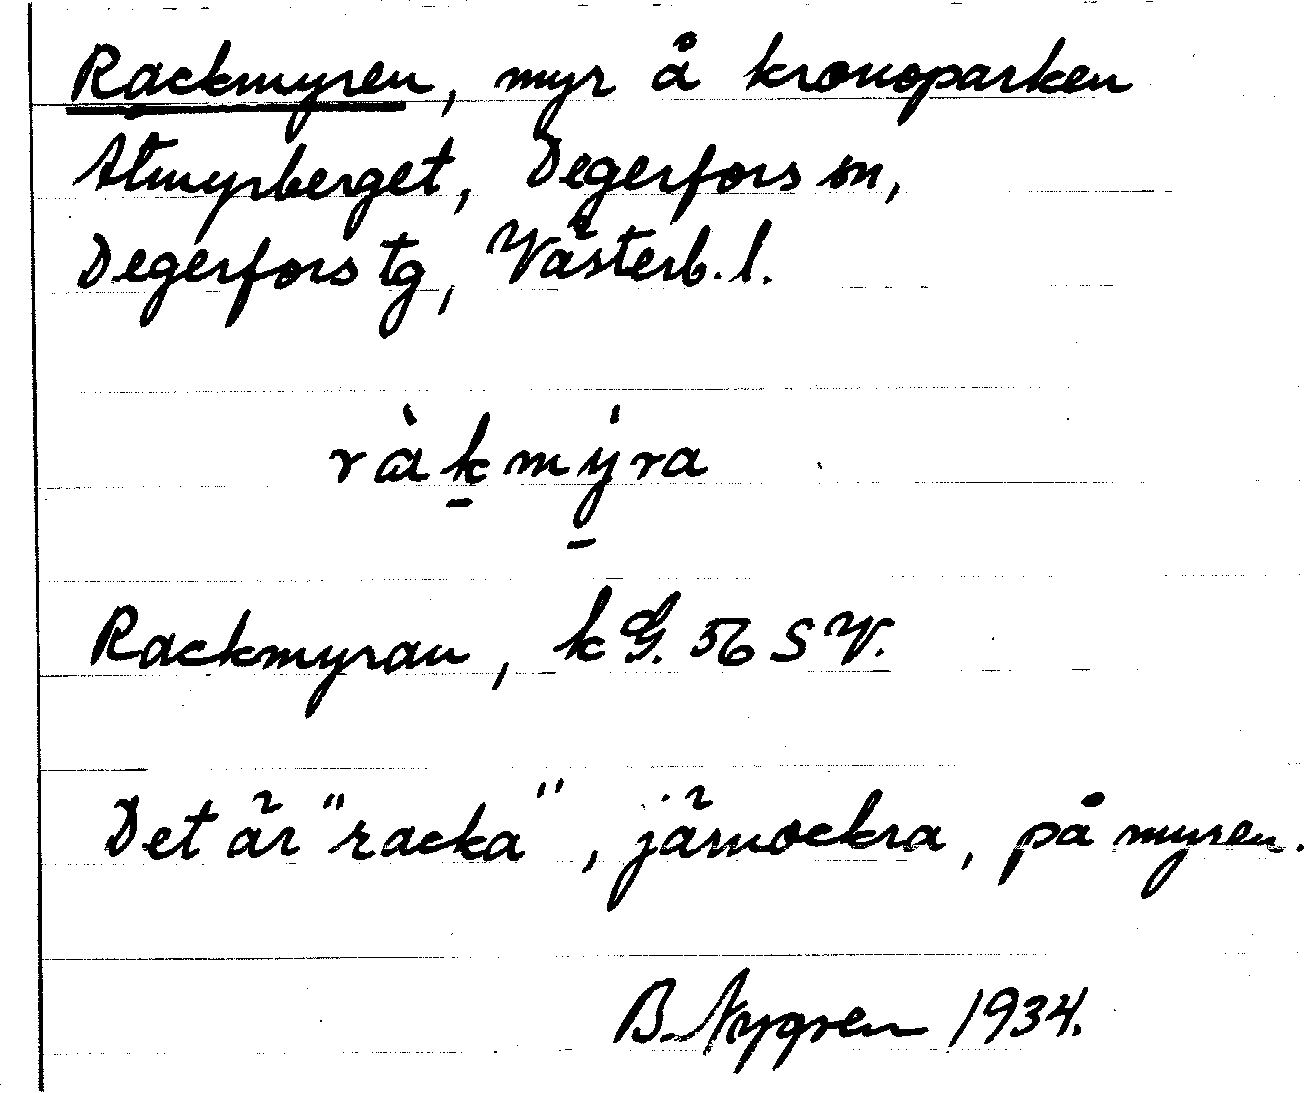 Rackmyren, myr å kronoparken
Åtmyrberget, Degerfors sn,
Degerfors tg, Västerb. l.
ràk̠mý̠ra
Rackmyran, kG. 56 SV.
Det är "racka", järnockra, på myren.
B. Nygren 1934.